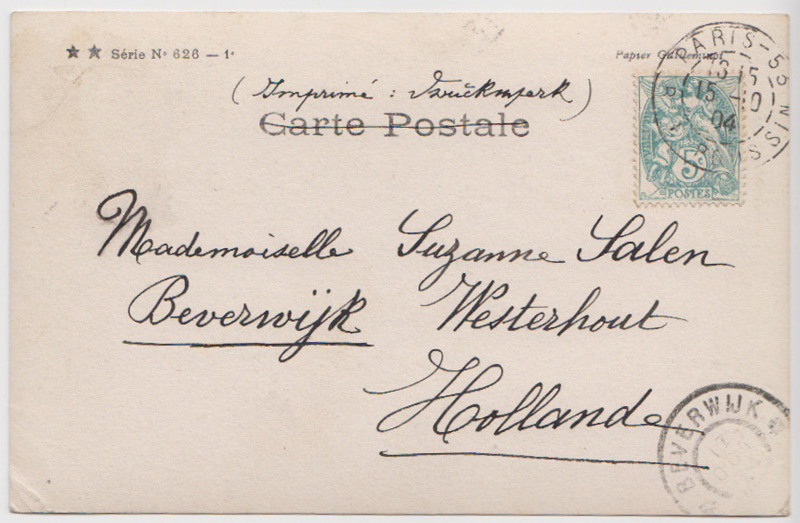 ★ ★ Série Nº 626 — 1ᵉ
Papier Guilleminot
(Imprimé : Drückwerk)
Carte Postale
PARIS-55
15
04
5c
POSTES
Mademoiselle Suzanne Salen
Beverwijk Westerhout
Hollande
BEVERWIJK